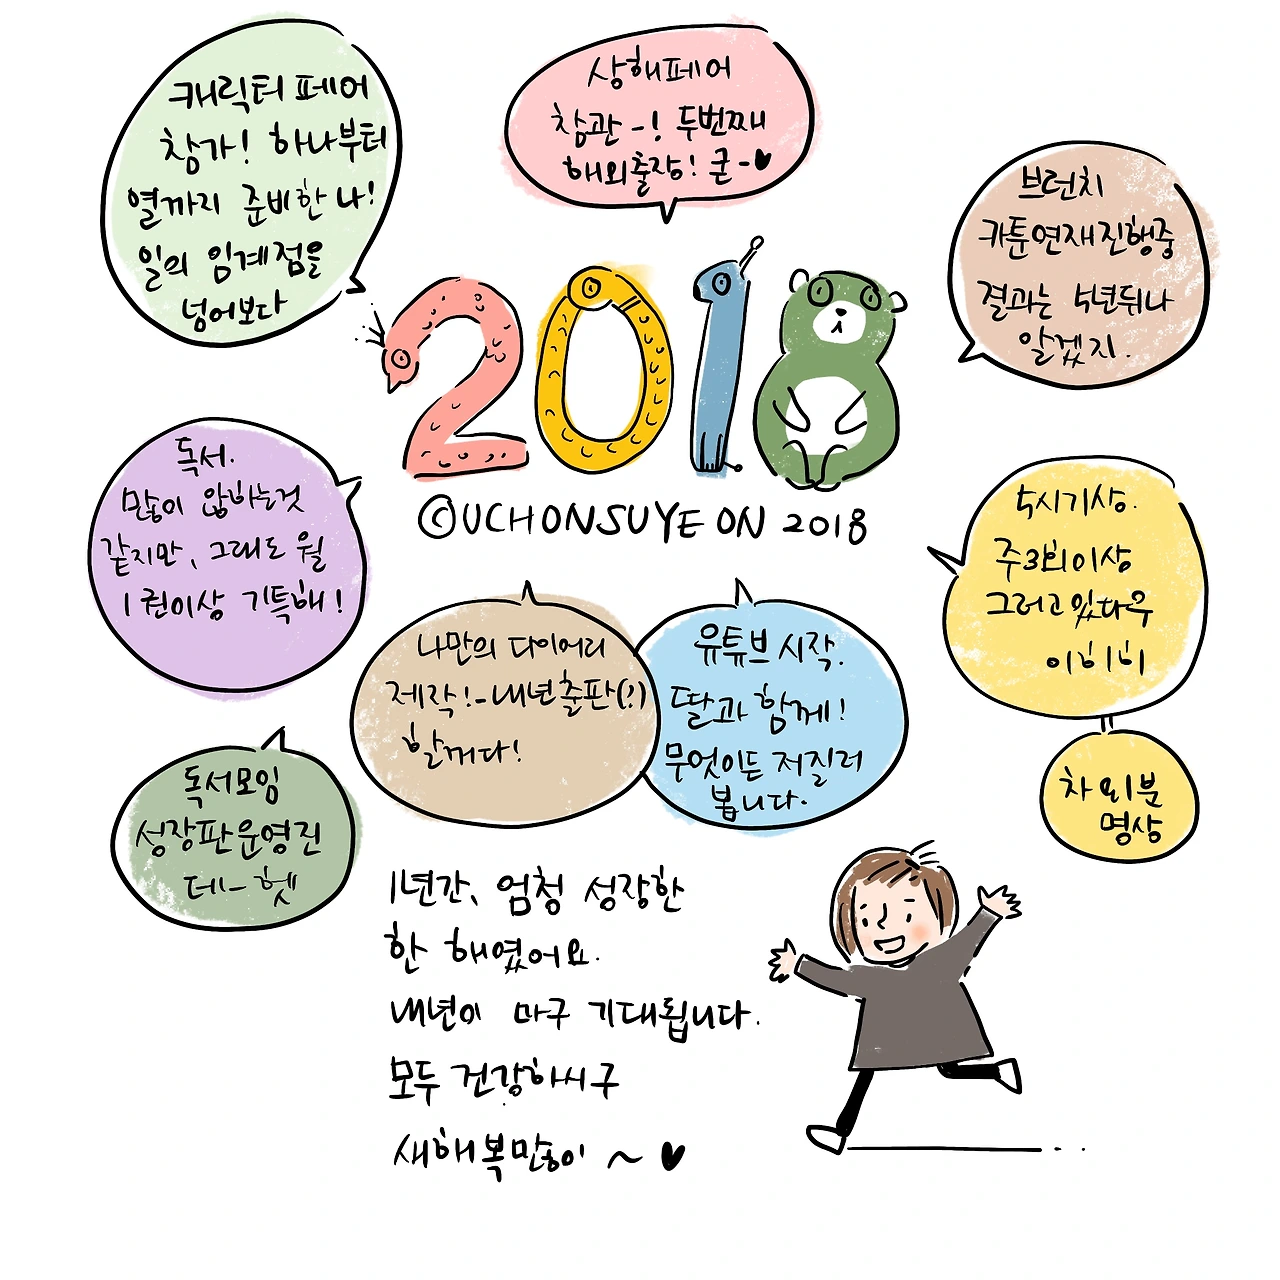 캐릭터 페어
참가! 하나부터
열까지 준비한 나!
일의 임계점을
넘어보다
상해페어
참관-! 두번째
해외출장! 굳-♥
브런치
카툰연재진행중
결과는 5년뒤나
알겠지.
2018
©UCHONSUYEON 2018
독서.
많이 않하는것
같지만, 그래도 월
1권이상 기특해!
5시기상.
주3회이상
그러고있다우
이히히
나만의 다이어리
제작!-내년출판(?)
할꺼다!
유튜브 시작.
딸과 함께!
무엇이든 저질러
봅니다.
독서모임
성장판운영진
데-헷
차 외1분
명상
1년간, 엄청 성장한
한 해였어요.
내년이 마구 기대됩니다.
모두 건강하시구
새해복많이 ~ ♥